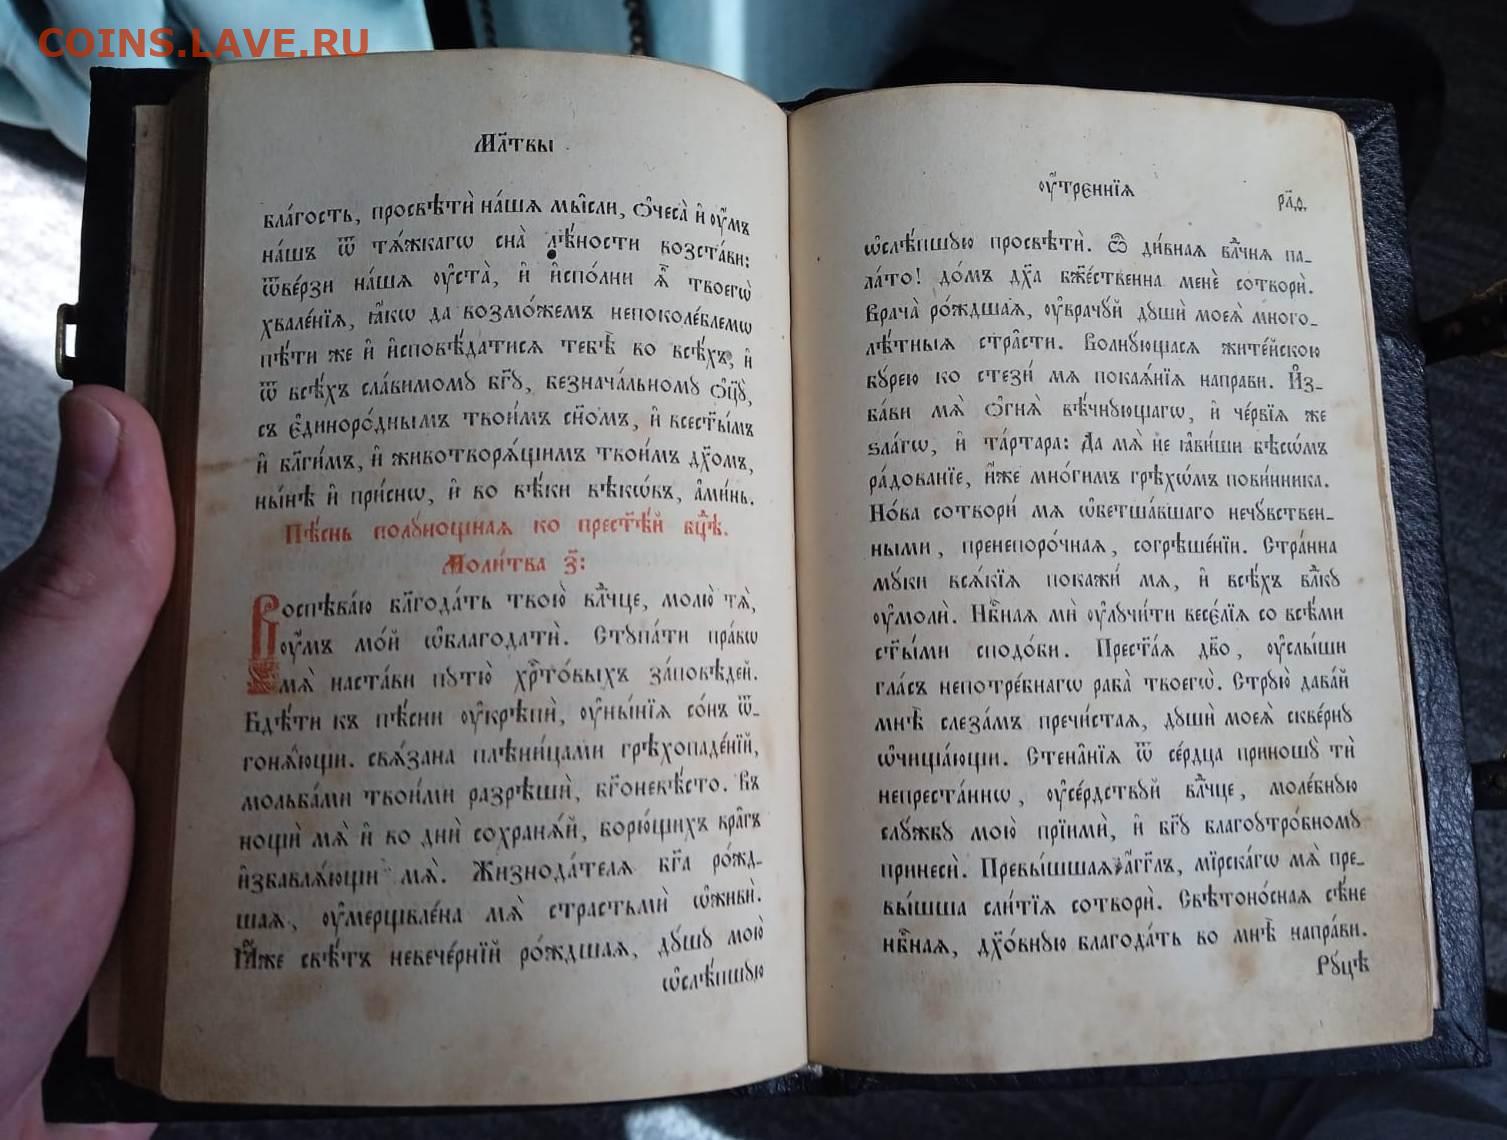 COINS.LAVE.RU
Мл҃твы
бла́гость, просвѣтѝ на́шѧ мы̑сли, ѻ҆чеса̀ и҆ ᲂу҆́мъ
на́шъ ѿ тѧ́жкагѡ сна̀ лѣ́ности возста́ви:
ѿве́рзи на́шѧ ᲂу҆ста̀, и҆ и҆спо́лни ѧ҆̀ твоегѡ̀
хвале́нїѧ, ꙗ҆́кѡ да возмо́жемъ непоколе́блемѡ
пѣ́ти же и҆ и҆сповѣ́датисѧ тебѣ̀ во всѣ́хъ, и҆
ѿ всѣ́хъ сла́вимомꙋ бг҃ꙋ, безнача́льномꙋ ѻ҆ц҃ꙋ̀,
съ є҆диноро́днымъ твои́мъ сн҃омъ, и҆ всест҃ы́мъ
и҆ бл҃ги́мъ, и҆ животворѧ́щимъ твои́мъ дх҃омъ,
ны́нѣ и҆ при́снѡ, и҆ во вѣ́ки вѣкѡ́въ, а҆ми́нь.
Пѣ́снь полꙋно́щнаѧ ко прест҃ѣ́й бц҃ѣ.
Моли́тва з҃:
Воспѣва́ю бл҃года́ть твою̀ вл҃чце, молю́ тѧ,
ᲂу҆́мъ мо́й ѡ҆благодатѝ. Стꙋпа́ти пра́вѡ
мѧ̀ наста́ви пꙋтю̀ хрⷭ҇то́выхъ за́повѣдей.
Бдѣ́ти къ пѣ́сни ᲂу҆крѣпѝ, ᲂу҆ны́нїѧ со́нъ ѿ-
гонѧ́ющи. свѧ́зана плѣни́цами грѣхопаде́нїй,
мольба́ми твои́ми разрѣшѝ, бг҃оневѣ́сто. Въ
нощѝ мѧ̀ и҆ во днѝ сохранѧ́й, борю́щихъ вра̑гъ
и҆збавлѧ́ющи мѧ̀. Жизнода́телѧ бг҃а ро́жд-
шаѧ, ᲂу҆мерщвле́на мѧ̀ страстьмѝ ѡ҆живѝ.
Ꙗ҆́же свѣ́тъ невече́рнїй ро́ждшаѧ, дꙋ́шꙋ мою̀
ѡ҆слѣ́пшꙋю
ᲂу҆́трєннїѧ
рл҃ѳ.
ѡ҆слѣ́пшꙋю просвѣтѝ. Ѽ ди́внаѧ вл҃чнѧ па-
ла́то! до́мъ дх҃а бж҃е́ственна менѐ сотворѝ.
Врача̀ ро́ждшаѧ, ᲂу҆врачꙋ́й дꙋшѝ моеѧ̀ много-
лѣ̑тныѧ стра̑сти. Волнꙋ́ющасѧ жите́йскою
бꙋ́рею ко стезѝ мѧ покаѧ́нїѧ напра́ви. И҆з-
ба́ви мѧ̀ ѻ҆гнѧ̀ вѣ́чнꙋющагѡ, и҆ че́рвїѧ же
ѕла́гѡ, и҆ та́ртара: Да мѧ̀ не ꙗ҆ви́ши бѣсѡ́мъ
ра́дованїе, и҆́же мно́гимъ грѣхѡ́мъ пови́нника.
Но́ва сотворѝ мѧ ѡ҆бетша́вшаго нечꙋ́вствен-
ными, пренепоро́чнаѧ, согрѣше́нїи. Стра́нна
мꙋ́ки всѧ́кїѧ покажи́ мѧ, и҆ всѣ́хъ вл҃кꙋ
ᲂу҆молѝ. Нбⷭ҇наѧ мѝ ᲂу҆лꙋчи́ти весє́лїѧ со всѣ́ми
ст҃ы́ми сподо́би. Прест҃а́ѧ дв҃о, ᲂу҆слы́ши
гла́съ непотре́бнагѡ раба̀ твоегѡ̀. Стрꙋю̀ дава́й
мнѣ̀ слеза́мъ пречи́стаѧ, дꙋшѝ моеѧ̀ скве́рнꙋ
ѡ҆чища́ющи. Стена̑нїѧ ѿ се́рдца приношꙋ́ ти
непреста́ннѡ, ᲂу҆се́рдствꙋй вл҃чце, моле́бнꙋю
слꙋ́жбꙋ мою̀ прїимѝ, и҆ бг҃ꙋ благоꙋтро́бномꙋ
принесѝ. Превы́шшаѧ а҆́гг҃лъ, мїрска́гѡ мѧ̀ пре-
вы́шша сли́тїѧ сотворѝ. Свѣтоно́снаѧ сѣ́не
нбⷭ҇наѧ, дх҃о́внꙋю благода́ть во мнѣ̀ напра́ви.
Рꙋ́цѣ